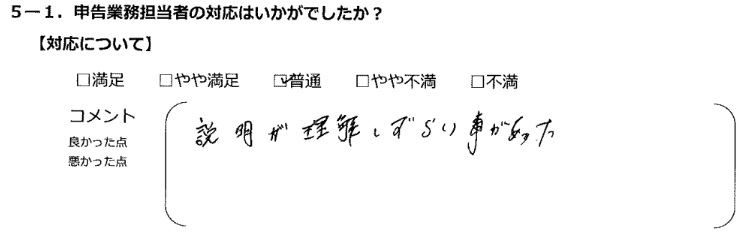 ５－１．申告業務担当者の対応はいかがでしたか？
【対応について】
□満足 □やや満足 ☑普通 □やや不満 □不満
コメント
良かった点
悪かった点
説明が理解しずらい事があった